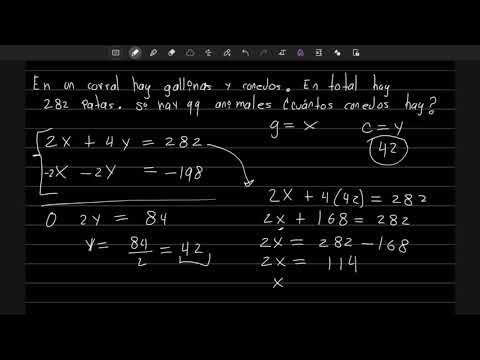 En un corral hay gallinas y conejos. En total hay
282 patas. Si hay 99 animales ¿cuántos conejos hay?
g = x
c = y
42
2x + 4y = 282
-2x - 2y = -198
0 2y = 84
y = 84/2 = 42
2x + 4(42) = 282
2x + 168 = 282
2x = 282 - 168
2x = 114
x